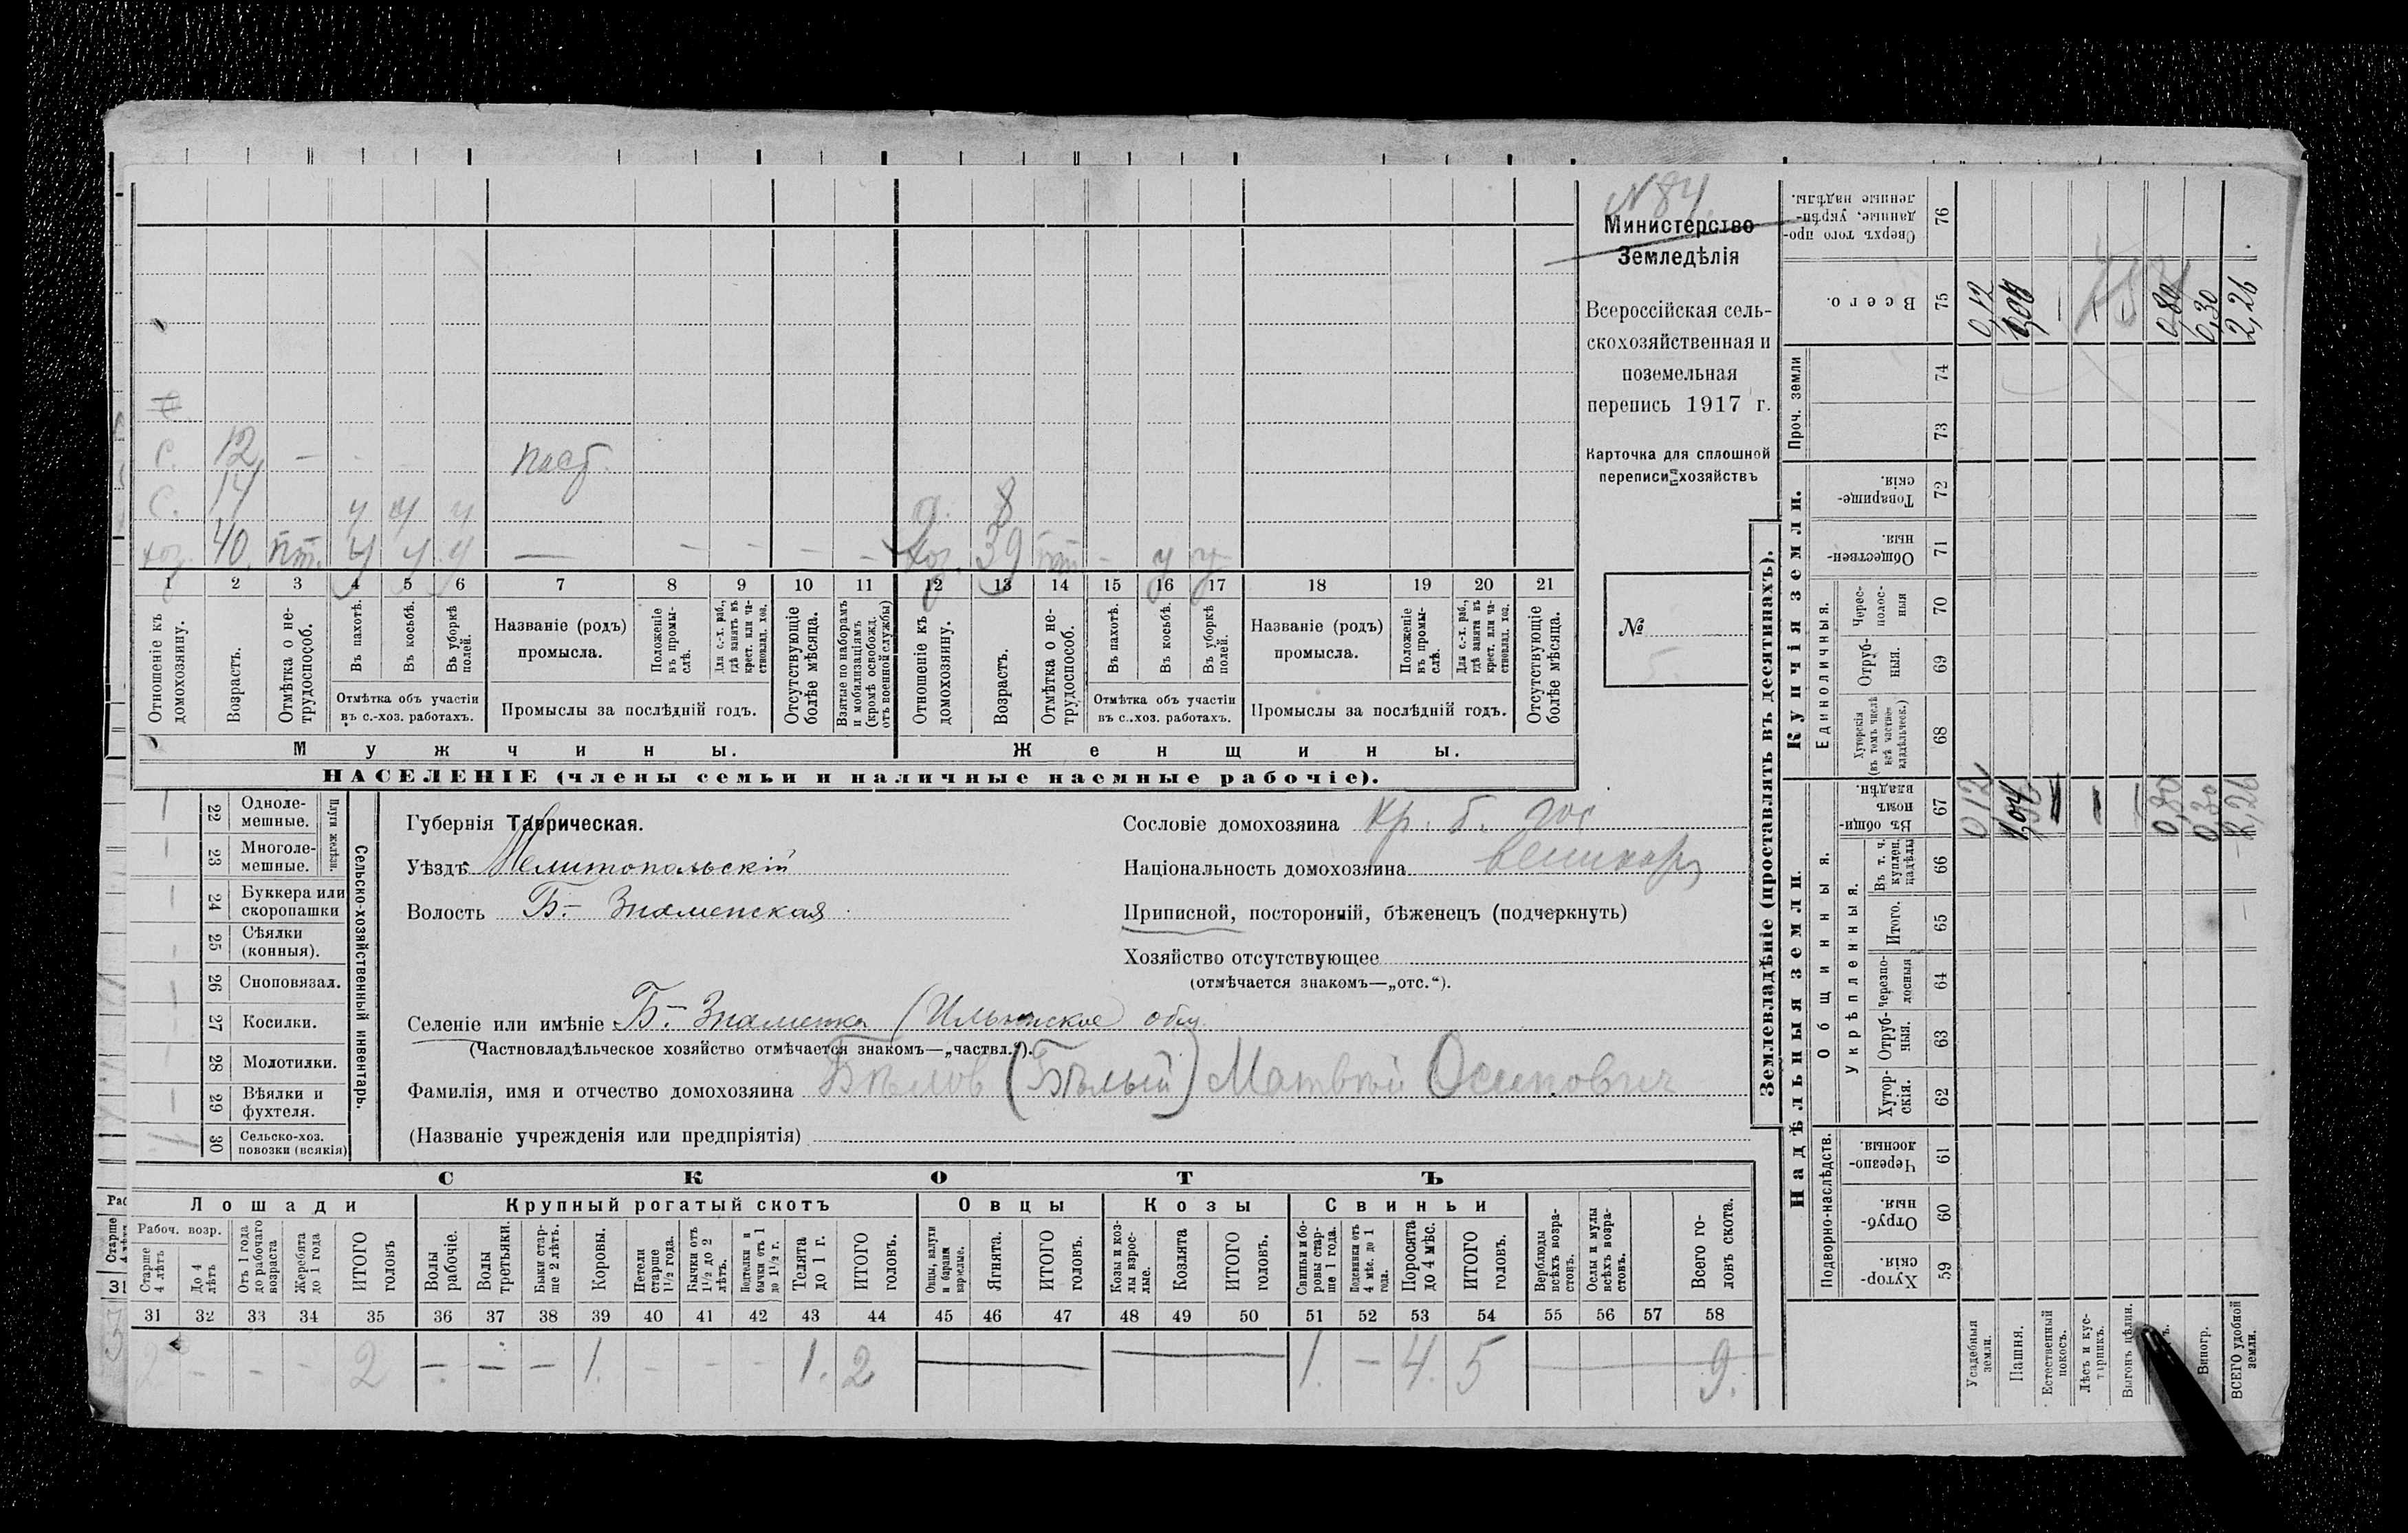 N 84.
Министерство
Земледѣлія
Всероссійская сель-
скохозяйственная и
поземельная
перепись 1917 г.
Карточка для сплошной
переписи хозяйствъ
№
5.
с. 12 — паст.
с. 14 у у у д. 8
хоз. 40. пт. у у у — — — — — хоз. 39 пт — у у
1 2 3 4 5 6 7 8 9 10 11 12 13 14 15 16 17 18 19 20 21
Отношеніе къ домохозяину.
Возрастъ.
Отмѣтка о не-трудоспособ.
Въ пахотѣ.
Въ косьбѣ.
Въ уборкѣ полей.
Отмѣтка объ участіи
въ с.-хоз. работахъ.
Названіе (родъ)
промысла.
Положеніе въ промы-слѣ.
Для с.-х. раб., гдѣ занятъ въ крест. или ча-стновлад. хоз.
Промыслы за послѣдній годъ.
Отсутствующіе болѣе мѣсяца.
Взятые по наборамъ и мобилизаціямъ (кромѣ освобожд. отъ военной службы)
Отношеніе къ домохозяину.
Возрастъ.
Отмѣтка о не-трудоспособ.
Въ пахотѣ.
Въ косьбѣ.
Въ уборкѣ полей.
Отмѣтка объ участіи
въ с.-хоз. работахъ.
Названіе (родъ)
промысла.
Положеніе въ промы-слѣ.
Для с.-х. раб., гдѣ занята въ крест. или ча-стновлад. хоз.
Промыслы за послѣдній годъ.
Отсутствующіе болѣе мѣсяца.
Мужчины. Женщины.
НАСЕЛЕНІЕ (члены семьи и наличные наемные рабочіе).
Сельско-хозяйственный инвентарь.
Плуги желѣзн.
22 Одноле-мешные.
23 Многоле-мешные.
24 Буккера или скоропашки
25 Сѣялки (конныя).
26 Сноповязал.
27 Косилки.
28 Молотилки.
29 Вѣялки и фухтеля.
30 Сельско-хоз. повозки (всякія)
1
Губернія Таврическая.
Уѣздъ Мелитопольскій
Волость Б.- Знаменская
Сословіе домохозяина кр. б. гос
Національность домохозяина великор
Приписной, посторонній, бѣженецъ (подчеркнуть)
Хозяйство отсутствующее
(отмѣчается знакомъ—„отс.“).
Селеніе или имѣніе Б.- Знаменка (Ильинское общ.
(Частновладѣльческое хозяйство отмѣчается знакомъ—„частвл.“).
Фамилія, имя и отчество домохозяина Бѣлов (Бѣлый) Матвѣй Осипович
(Названіе учрежденія или предпріятія)
СКОТЪ
Лошади Крупный рогатый скотъ Овцы Козы Свиньи
Рабоч. возр.
Старше 4 лѣтъ
До 4 лѣтъ
Отъ 1 года до рабочаго возраста
Жеребята до 1 года
ИТОГО головъ
Волы рабочіе.
Волы третьяки.
Быки стар-ше 2 лѣтъ.
Коровы.
Нетели старше 1½ года.
Бычки отъ 1½ до 2 лѣтъ.
Подтелки и бычки отъ 1 до 1½ г.
Телята до 1 г.
ИТОГО головъ.
Овцы, валухи и бараны взрослые.
Ягнята.
ИТОГО головъ.
Козы и коз-лы взрос-лые.
Козлята
ИТОГО головъ.
Свиньи и бо-ровы стар-ше 1 года.
Подсвинки отъ 4 мѣс. до 1 года.
Поросята до 4 мѣс.
ИТОГО головъ.
Верблюды всѣхъ возра-стовъ.
Ослы и мулы всѣхъ возра-стовъ.
Всего го-ловъ скота.
31 32 33 34 35 36 37 38 39 40 41 42 43 44 45 46 47 48 49 50 51 52 53 54 55 56 57 58
2 — — — 2 — — — 1. — — — 1. 2 — — 1. — 4. 5 — 9.
Землевладѣніе (проставлять въ десятинахъ).
Надѣльныя земли.
Купчія земли.
Проч. земли
Подворно-наслѣдств.
Общинныя.
Укрѣпленныя.
Единоличныя.
Хутор-скія. 59
Отруб-ныя. 60
Черезпо-лосныя 61
Хутор-скія. 62
Отруб-ныя. 63
Черезпо-лосныя 64
Итого. 65
Въ т. ч. куплен. надѣлы 66
Въ общи-номъ владѣн. 67
Хуторскія (въ томъ числѣ всѣ частно-владѣльческ.) 68
Отруб-ныя. 69
Черес-полос-ныя 70
Обществен-ныя. 71
Товарище-скія. 72
73
74
Всего. 75
Сверхъ того про-данные, укрѣп-ленные надѣлы. 76
Усадебныя земли. 0,12 0,12
Пашня. 1,04
Естественный покосъ.
Лѣсъ и кус-тарникъ.
Выгонъ цѣлин.
0,80 0,80
Виногр. 0,30 0,30
ВСЕГО удобной земли. 2,26 2,26